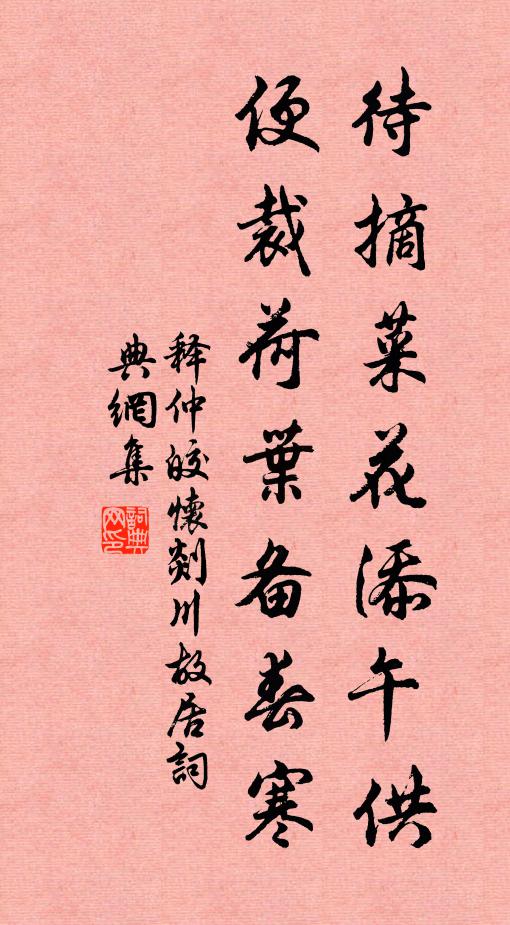 待摘菜花添午供
便裁荷葉备春寒
释仲皎懷剡川故居詞
典網集
詞典
网印